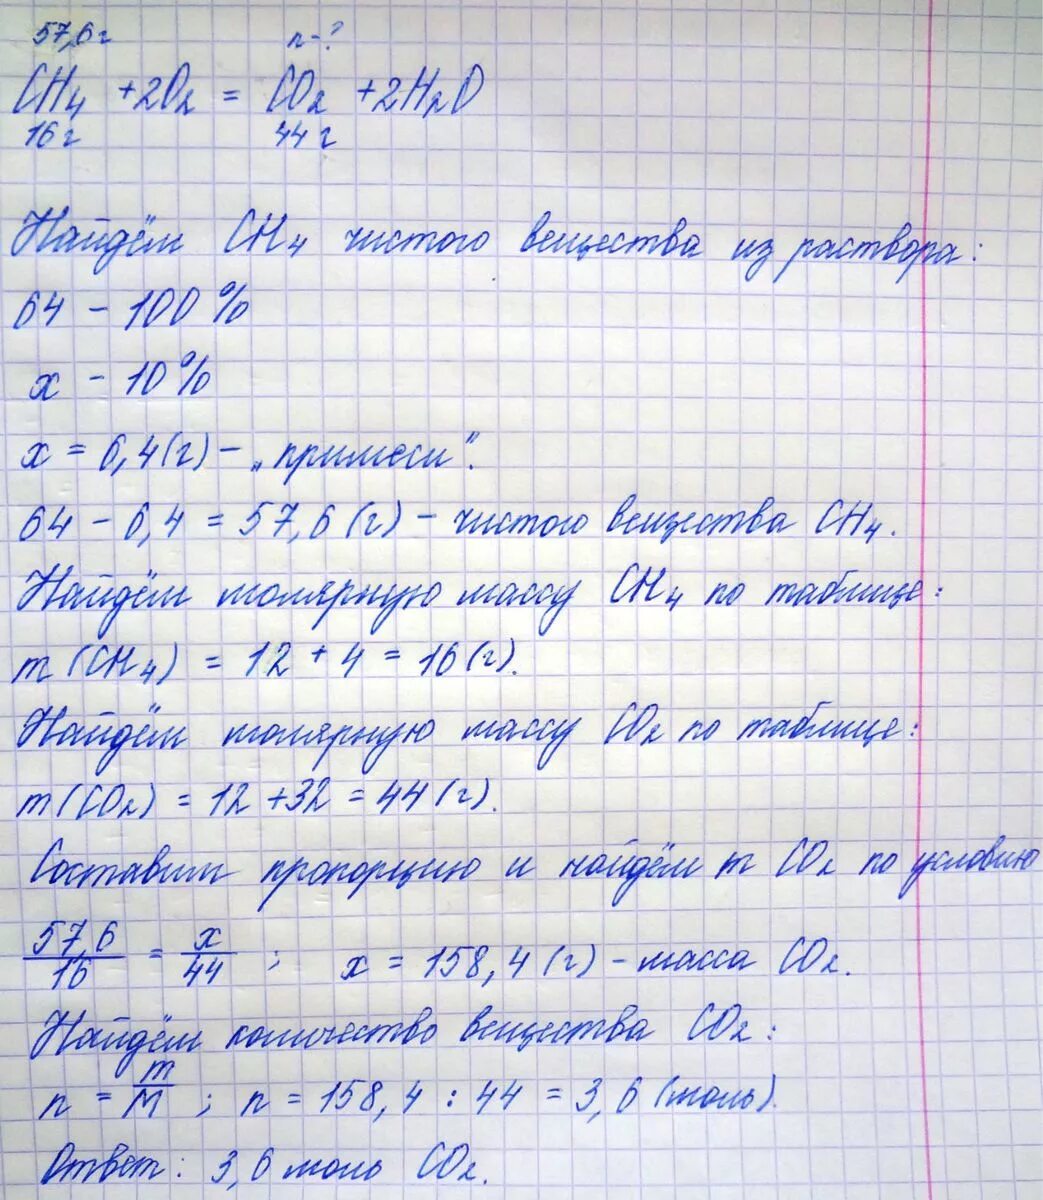 57,6г n-?
CH₄ +2O₂ = CO₂ +2H₂O
16г 44г
Найдём CH₄ чистого вещества из раствора:
64 - 100%
x - 10%
x = 6,4(г) - „примеси".
64 - 6,4 = 57,6(г) - чистого вещества CH₄.
Найдём молярную массу CH₄ по таблице:
m(CH₄) = 12 + 4 = 16(г).
Найдём молярную массу CO₂ по таблице:
m(CO₂) = 12 +32 = 44(г).
Составим пропорцию и найдём m CO₂ по условию
57,6/16 = x/44 ; x = 158,4(г) - масса CO₂.
Найдём количество вещества CO₂:
n = m/M ; n = 158,4 : 44 = 3,6 (моль).
Ответ: 3,6 моль CO₂.